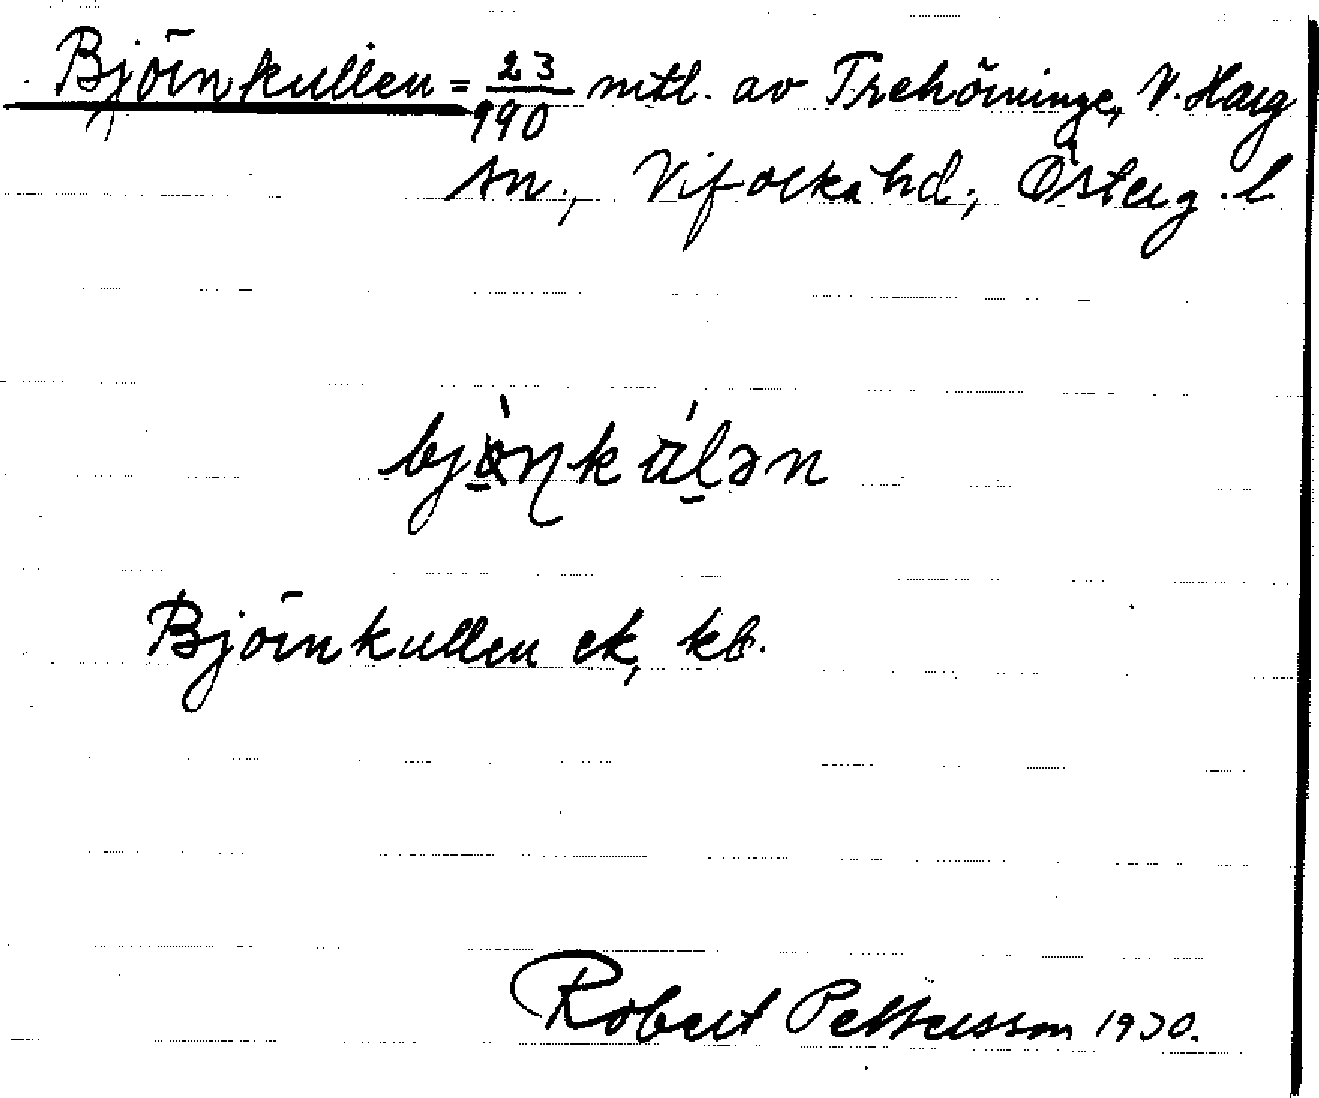 Björnkullen = 23/990 mtl. av Trehörninge, V. Harg
sn., Vifolka hd, Österg. l
Björnkullen ek, kb.
Robert Pettersson 1930.